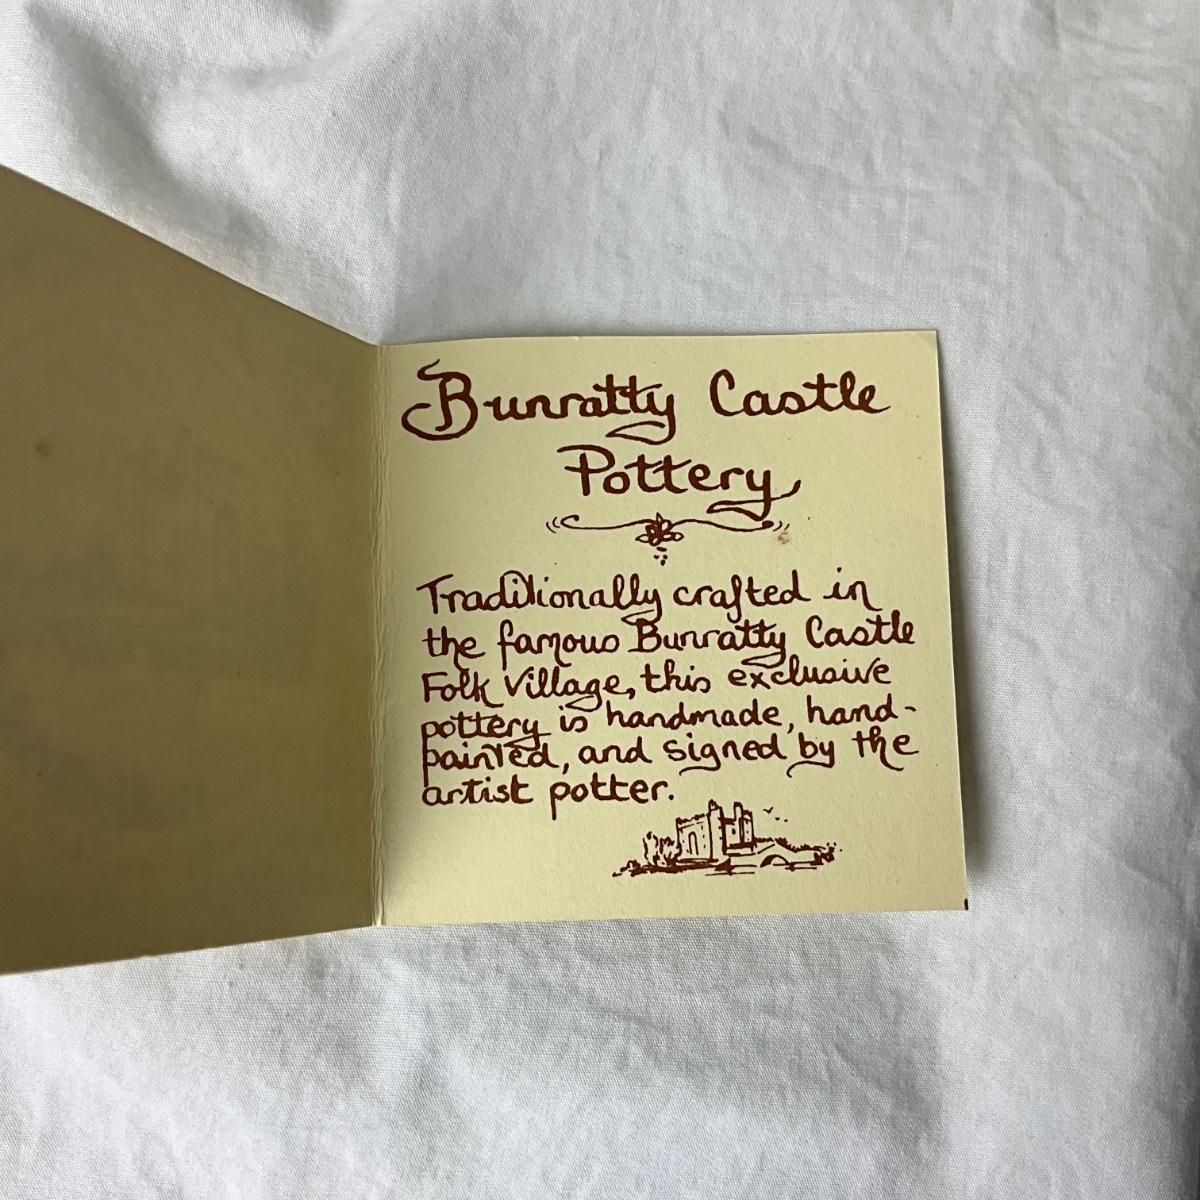 Bunratty Castle
Pottery
Traditionally crafted in
the famous Bunratty Castle
Folk Village, this exclusive
pottery is handmade, hand-
painted, and signed by the
artist potter.